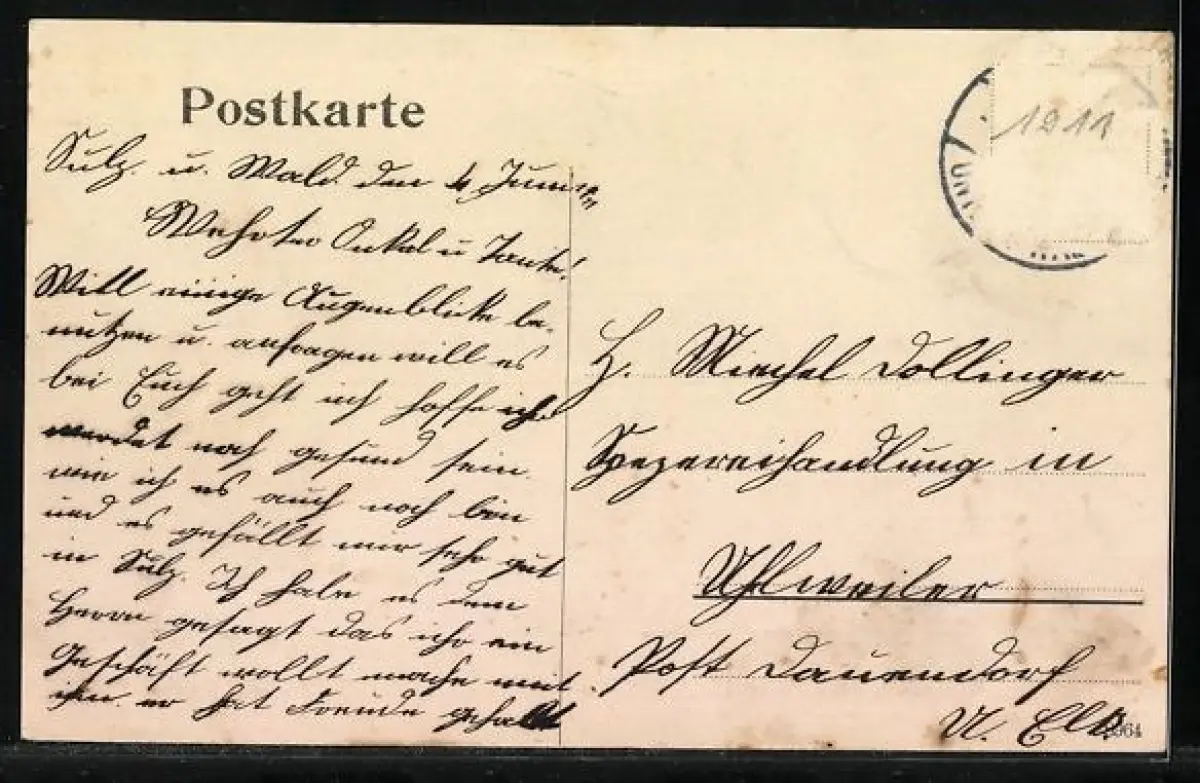 Postkarte
1911
Sulz u. Wald den 4 Juni 11
Wehrter Onkel u Tante!
Will einige Augenblicke be-
nutzen u. anfragen will es
bei Euch geht ich hoffe ihr
werdet noch gesund sein
wie ich es auch noch bin
und es gefällt mir sehr gut
in Sulz. Ich habe es dem
Herrn gesagt das ihr ein
Geschäft wollt mache mit
ihm er hat Freude gehabt
H. Miechel Dollinger
Spezereihandlung in
Uhlweiler
Post Dauendorf
U. Els.